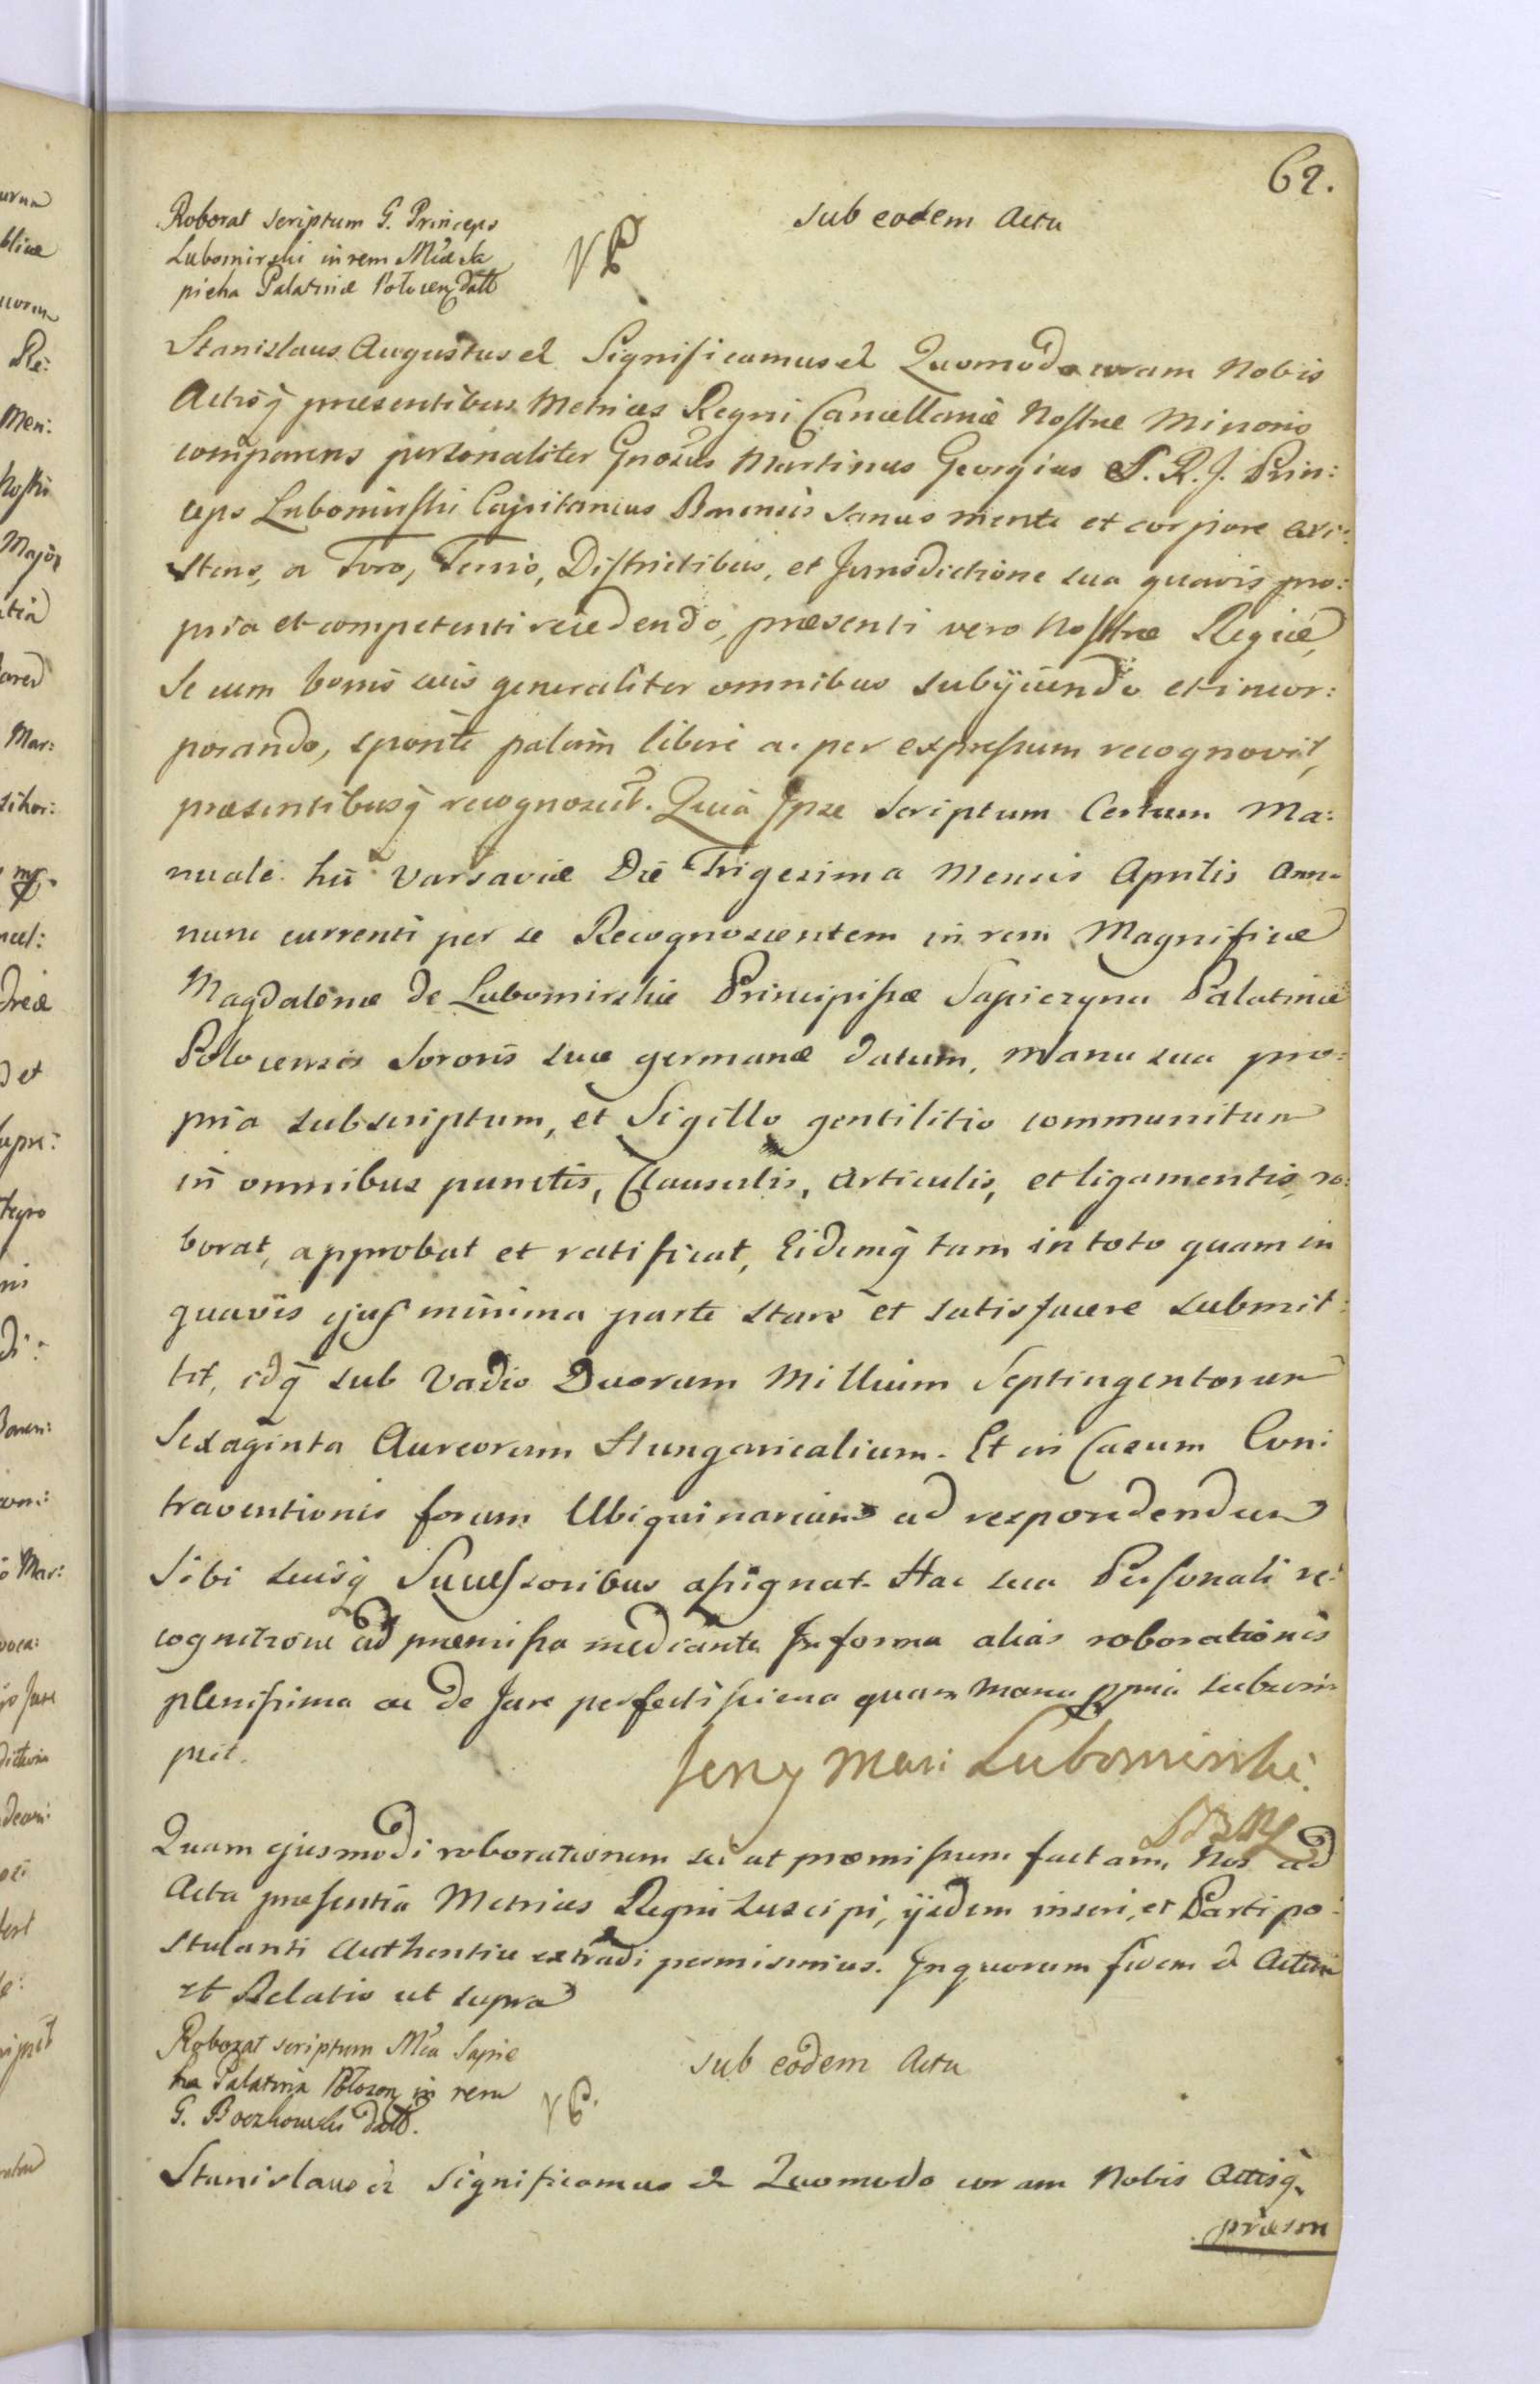 62.
Roborat scriptum G. Princeps
Lubomirski in rem Mcæ Sa
pieha Palatinæ Polocen datt
sub eodem Actu
Stanislaus Augustus et Significamus et Quomodo coram Nobis
Actisq præsentibus Metrices Regni Cancellariæ Nostræ Minoris
comparens personaliter Gnosus Martinus Georgius S. R. J. Prin:
ceps Lubomirski Capitaneus Barensis sanus mente et corpore exi:
stens, a Foro, Terris, Districtibus, et Jurisdictione sua quavis pro:
pria et competenti recedendo, præsenti vero Nostræ Regiæ,
Se cum bonis suis generaliter omnibus subyiciendo et incor:
porando, sponte palam libere ac per expressum recognovit,
præsentibusq recognoscit. Quia Ipse Scriptum Certum Ma:
nuale hic Varsaviæ Die Trigesima Mensis Aprilis Anno
nunc currenti per se Recognoscentem in rem Magnificæ
Magdalenæ de Lubomirskie Principissæ Sapiezyna Palatinæ
Polocensis Sororis suæ germanæ datum, Manu sua pro:
pria subscriptum, et Sigillo gentilitio communitum
in omnibus punctis, Clausulis, Articulis, et ligamentis, ro:
borat, approbat et ratificat, Eidemq tam in toto quam in
quavis ejus minima parte stare et satisfacere submit:
tit, idq sub Vadio Duorum Millium Septingentorum
Sexaginta Aureorum Hungaricalium. Et in Casum Con:
traventionis forum Ubiquinarium ad respondendum
Sibi suisq Successoribus assignat. Hac sua Personali re:
cognitione ad præmissa mediante In forma alias roborationis
plenissima ac de Jure perfectissima quam Manu ppria subscri
psit.
Jerzy Marc: Lubomirski.
Quam ejusmodi roborationem sic ut præmissum factam, Nos ad
Acta præsentia Metrices Regni suscipi, ijsdem inseri, et Parti po:
stulanti Authentice extradi permisimus. In quorum fidem et Actum
et Relatio ut supra
Roborat scriptum Mca Sapie
ha Palatina Polocen in rem
G. Boczkowski datt.
sub eodem Actu
Stanislaus et Significamus et Quomodo coram Nobis Actisq
præsen